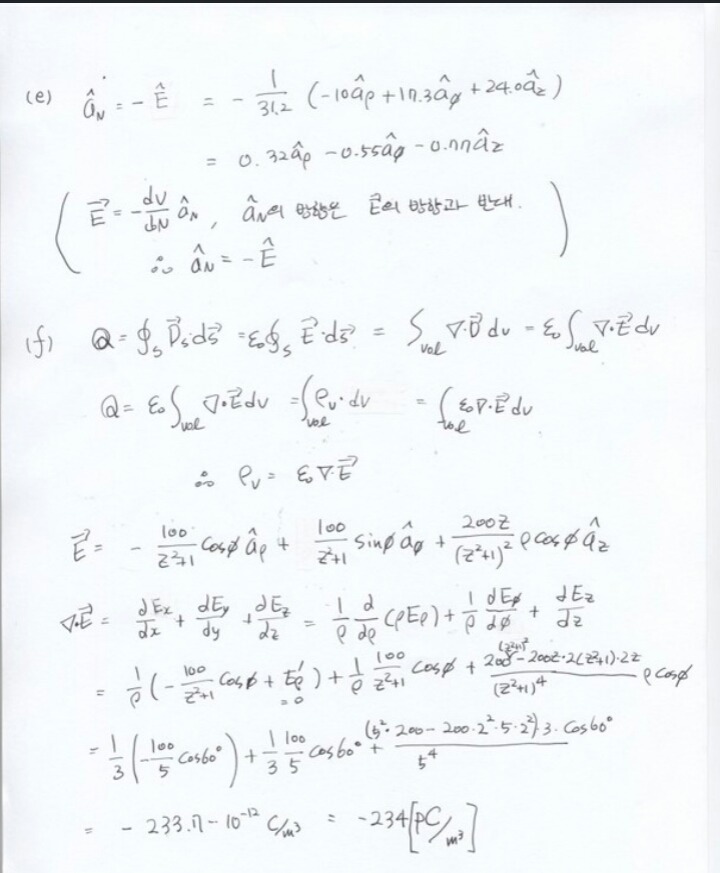 (e) â_N = - Ê = - 1/31.2 (-10â_ρ + 17.3â_φ + 24.0â_z)
= 0.32â_ρ - 0.55â_φ - 0.77â_z
( E⃗ = - dV/dN â_N , â_N의 방향은 E⃗의 방향과 반대.
∴ â_N = - Ê )
(f) Q = ∮_s D⃗_s·ds⃗ = ε₀∮_s E⃗·ds⃗ = ∫_vol ∇·D⃗ dv = ε₀∫_vol ∇·E⃗ dv
Q = ε₀∫_vol ∇·E⃗ dv = ∫_vol ρ_v·dv = ∫_vol ε₀∇·E⃗ dv
∴ ρ_v = ε₀∇·E⃗
E⃗ = - 100/(z²+1) cosφ â_ρ + 100/(z²+1) sinφ â_φ + 200z/(z²+1)² ρcosφ â_z
∇·E⃗ = dEx/dx + dEy/dy + dEz/dz = 1/ρ d/dρ (ρEρ) + 1/ρ dEφ/dφ + dEz/dz
= 1/ρ (- 100/(z²+1) cosφ + Eρ' = 0) + 1/ρ 100/(z²+1) cosφ + (200(z²+1)² - 200z·2(z²+1)·2z)/(z²+1)⁴ ρcosφ
= 1/3 (- 100/5 cos60°) + 1/3 100/5 cos60° + (5²·200 - 200·2²·5·2²)·3·cos60°/5⁴
= - 233.7 - 10⁻¹² C/m³ = -234 [pC/m³]